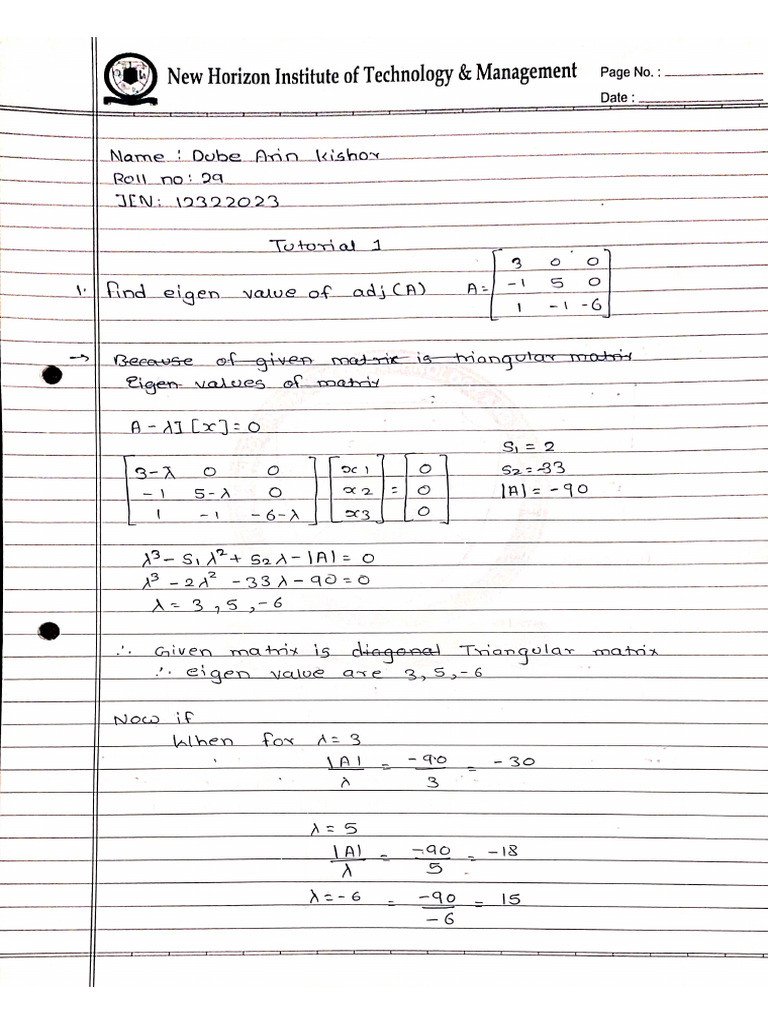 New Horizon Institute of Technology & Management
Page No. :
Date :
Name : Dube Arin Kishor
Roll no: 29
IEN: 12322023
Tutorial 1
1. find eigen value of adj(A) A = [3 0 0
-1 5 0
1 -1 -6]
→ Because of given matrix is triangular matrix
Eigen values of matrix
A - λI [x] = 0
S1 = 2
S2 = -33
|A| = -90
[3-λ 0 0] [x1] = [0]
[-1 5-λ 0] [x2] = [0]
[1 -1 -6-λ] [x3] = [0]
λ³ - S1 λ² + S2 λ - |A| = 0
λ³ - 2λ² - 33λ - 90 = 0
λ = 3, 5, -6
∴ Given matrix is diagonal Triangular matrix
∴ eigen value are 3, 5, -6
Now if
When for λ = 3
|A|/λ = -90/3 = -30
λ = 5
|A|/λ = -90/5 = -18
λ = -6 = -90/-6 = 15